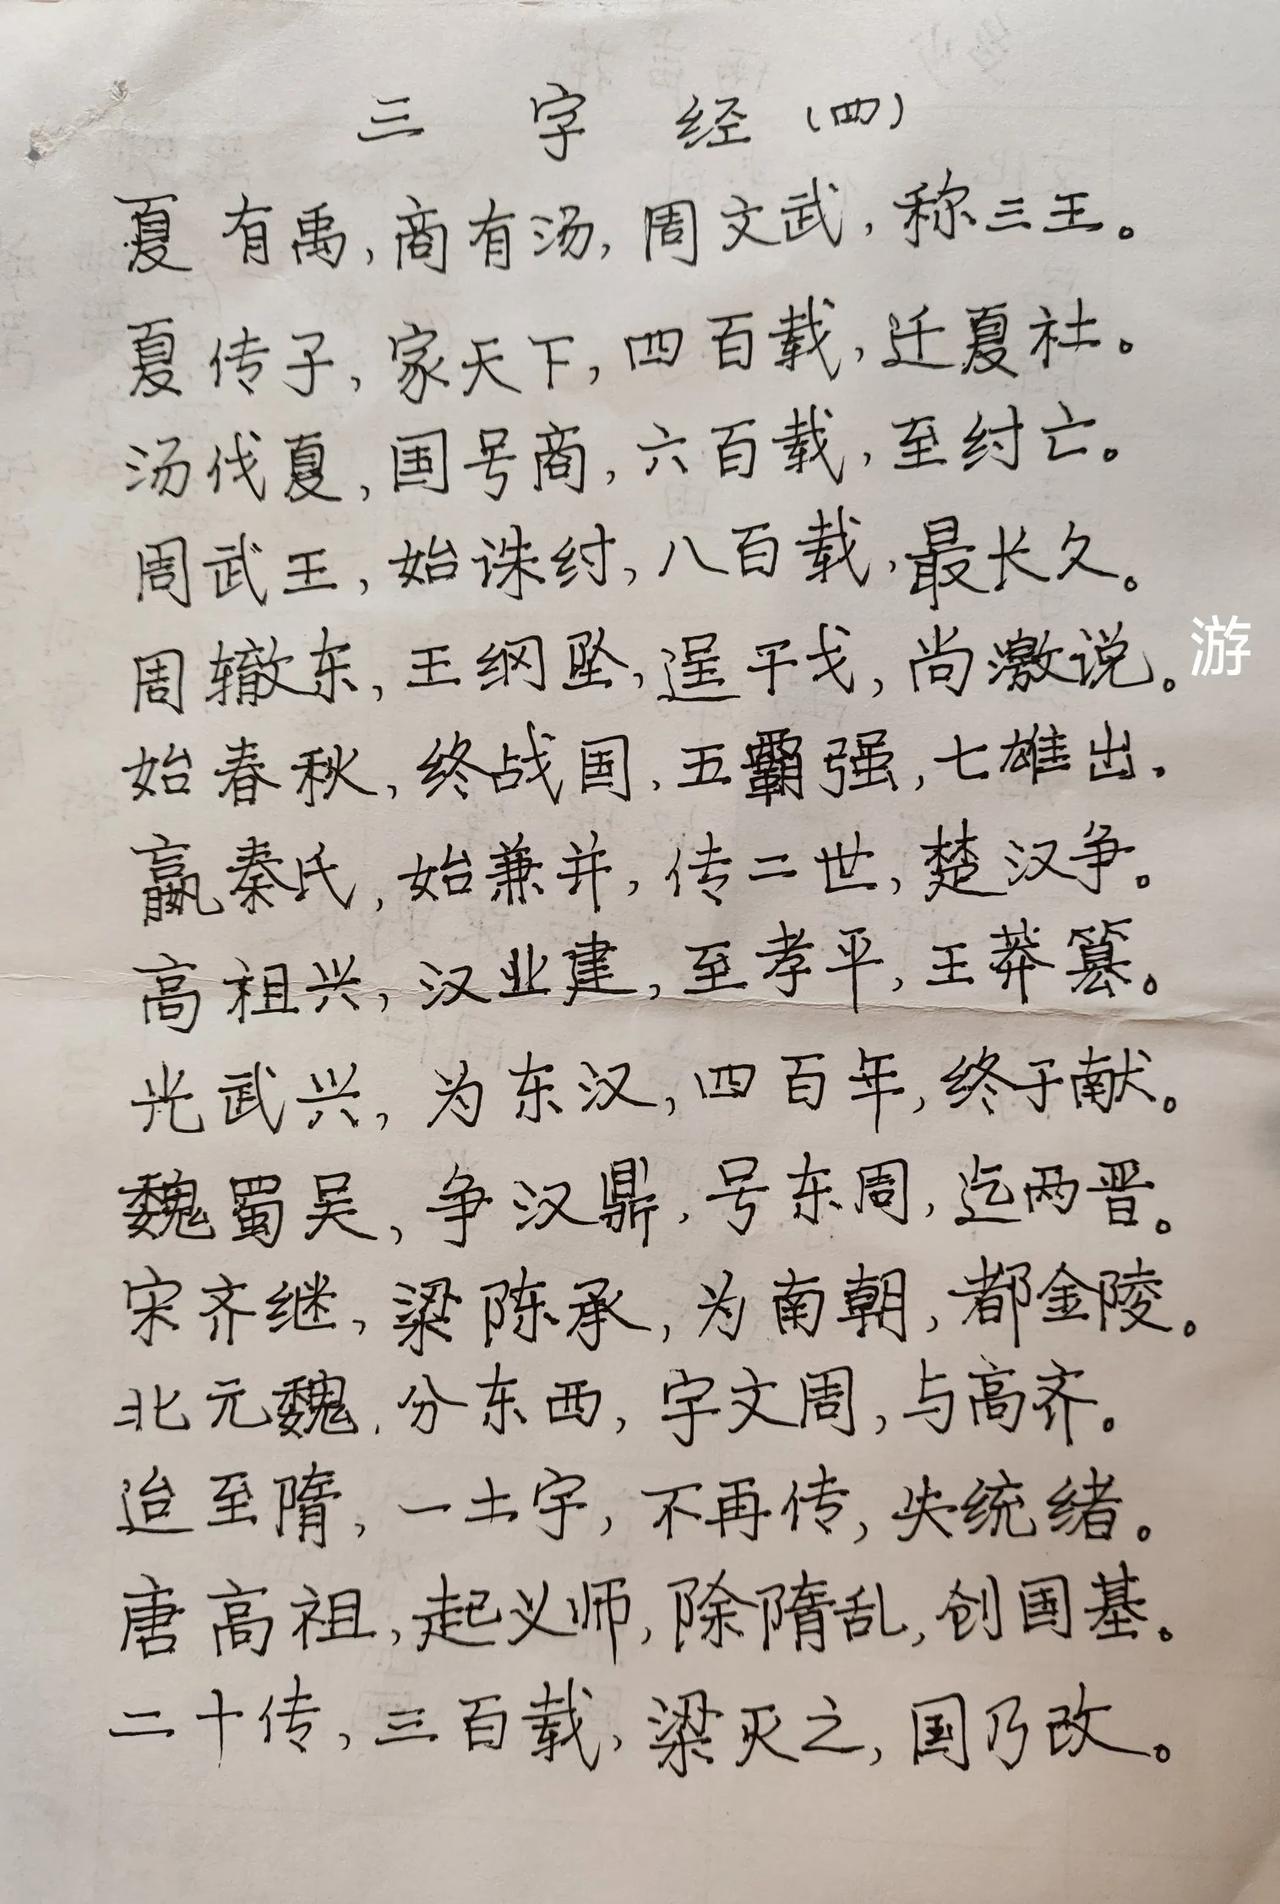 三字经（四）
夏有禹，商有汤，周文武，称三王。
夏传子，家天下，四百载，迁夏社。
汤伐夏，国号商，六百载，至纣亡。
周武王，始诛纣，八百载，最长久。
周辙东，王纲坠，逞干戈，尚激说。
游
始春秋，终战国，五霸强，七雄出。
嬴秦氏，始兼并，传二世，楚汉争。
高祖兴，汉业建，至孝平，王莽篡。
光武兴，为东汉，四百年，终于献。
魏蜀吴，争汉鼎，号东周，迄两晋。
宋齐继，梁陈承，为南朝，都金陵。
北元魏，分东西，宇文周，与高齐。
迨至隋，一土宇，不再传，失统绪。
唐高祖，起义师，除隋乱，创国基。
二十传，三百载，梁灭之，国乃改。